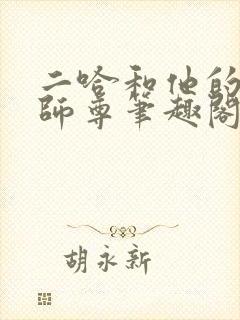 二哈和他的
師尊筆趣閣
胡永新